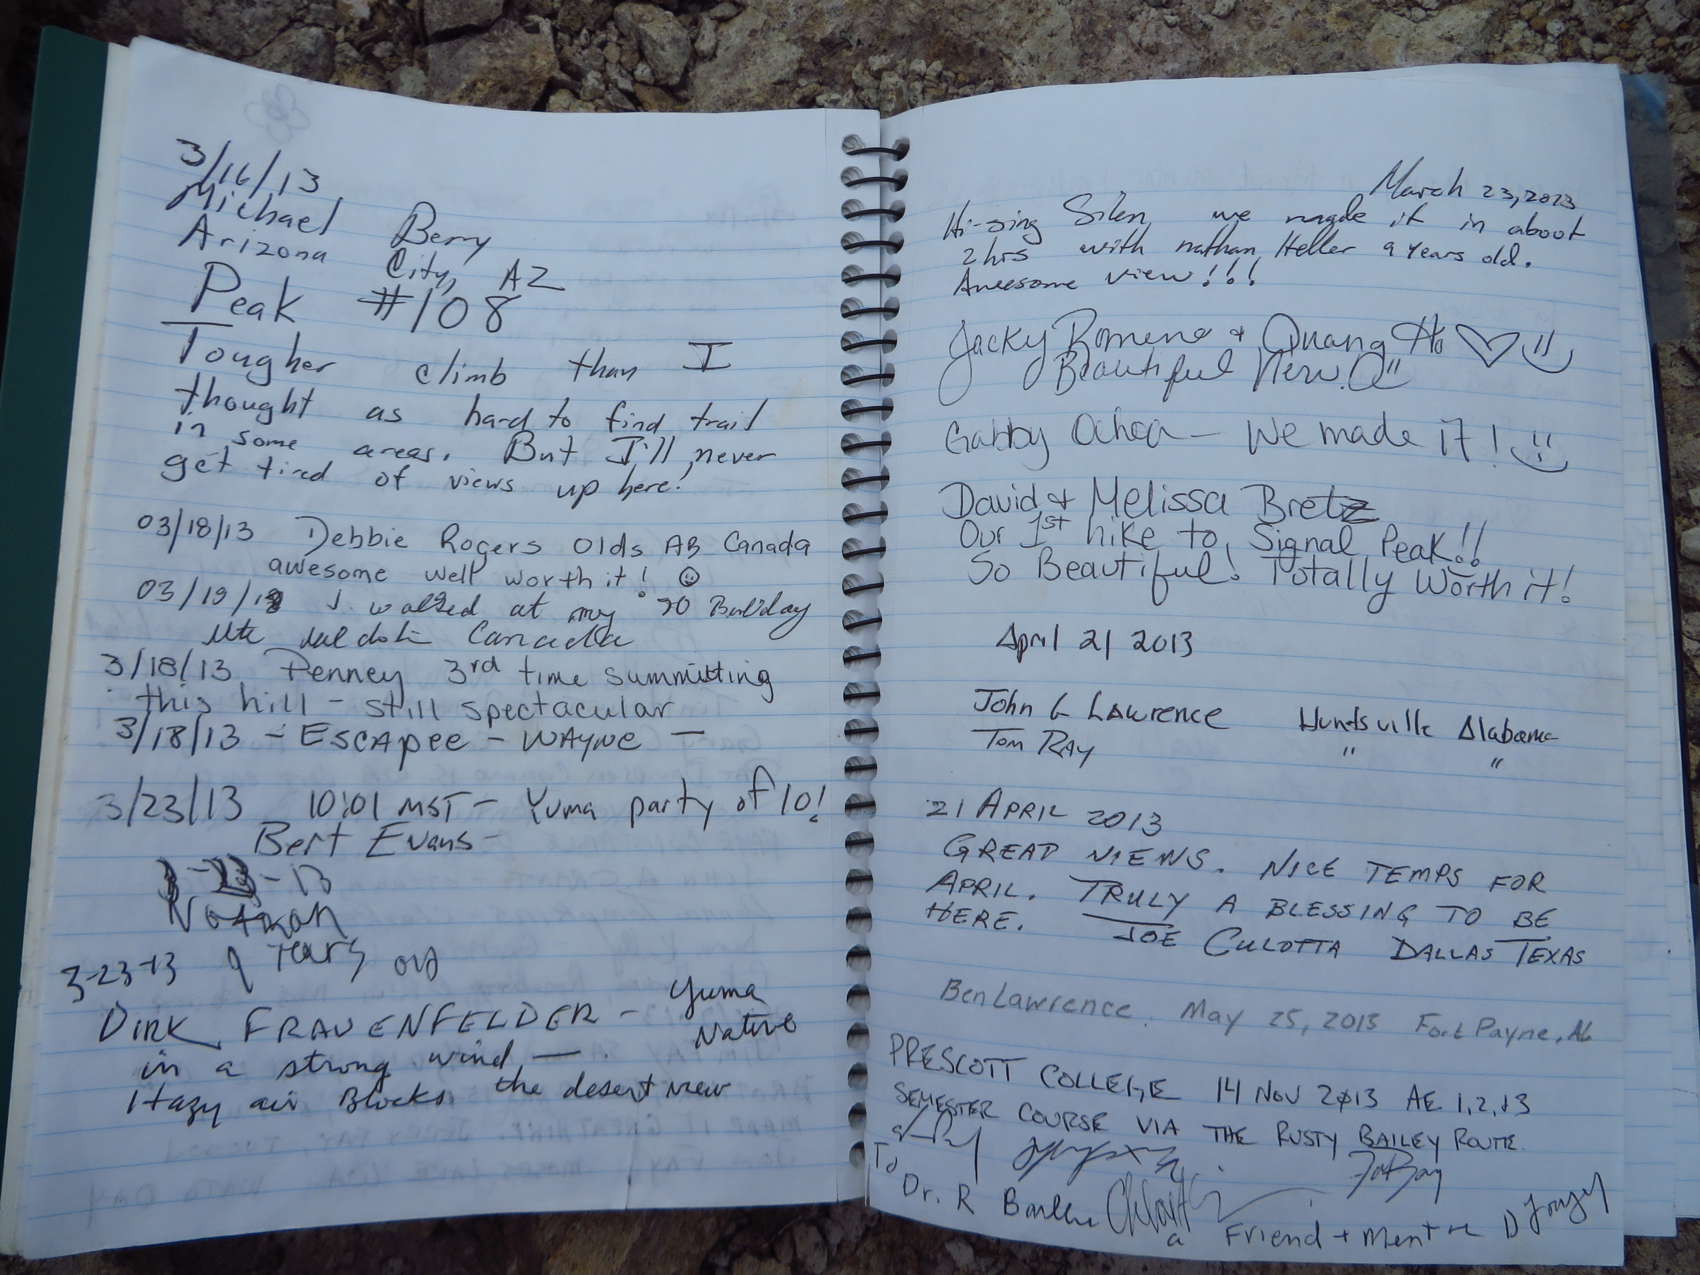 3/16/13
Michael Berry
Arizona City, AZ
Peak #108
Tougher climb than I
thought as hard to find trail
in some areas. But I'll never
get tired of views up here!
03/18/13 Debbie Rogers Olds AB Canada
awesome well worth it! ☺
03/19/13 I walked at my 70
Canada
3/18/13 Penney 3rd time summitting
this hill - still spectacular
3/18/13 - Escapee - Wayne -
3/23/13 10:01 MST - Yuma party of 10!
Bert Evans -
-13
Nathan
9 Years old
3-23-13
DIRK FRAUENFELDER - Yuma Native
in a strong wind - .
Hazy air Blocks the desert view
March 23, 2013
we made it in about
2 hrs with nathan Heller 9 years old.
Awesome view!!!
Jacky Romeno + Quang Ho ♡
Beautiful View.
Gabby Ochoa - We made it!
David + Melissa Bretz
Our 1st hike to Signal Peak!!
So Beautiful! Totally Worth it!
April 21 2013
John G Lawrence Huntsville Alabama
Tom Ray " "
21 APRIL 2013
GREAT VIEWS. NICE TEMPS FOR
APRIL. TRULY A BLESSING TO BE
HERE. JOE CULOTTA DALLAS TEXAS
Ben Lawrence. May 25, 2013 Fort Payne, AL
PRESCOTT COLLEGE 14 NOV 2013 AE 1,2,+3
SEMESTER COURSE VIA THE RUSTY BAILEY ROUTE.
To
Dr. R
a Friend + Mentor